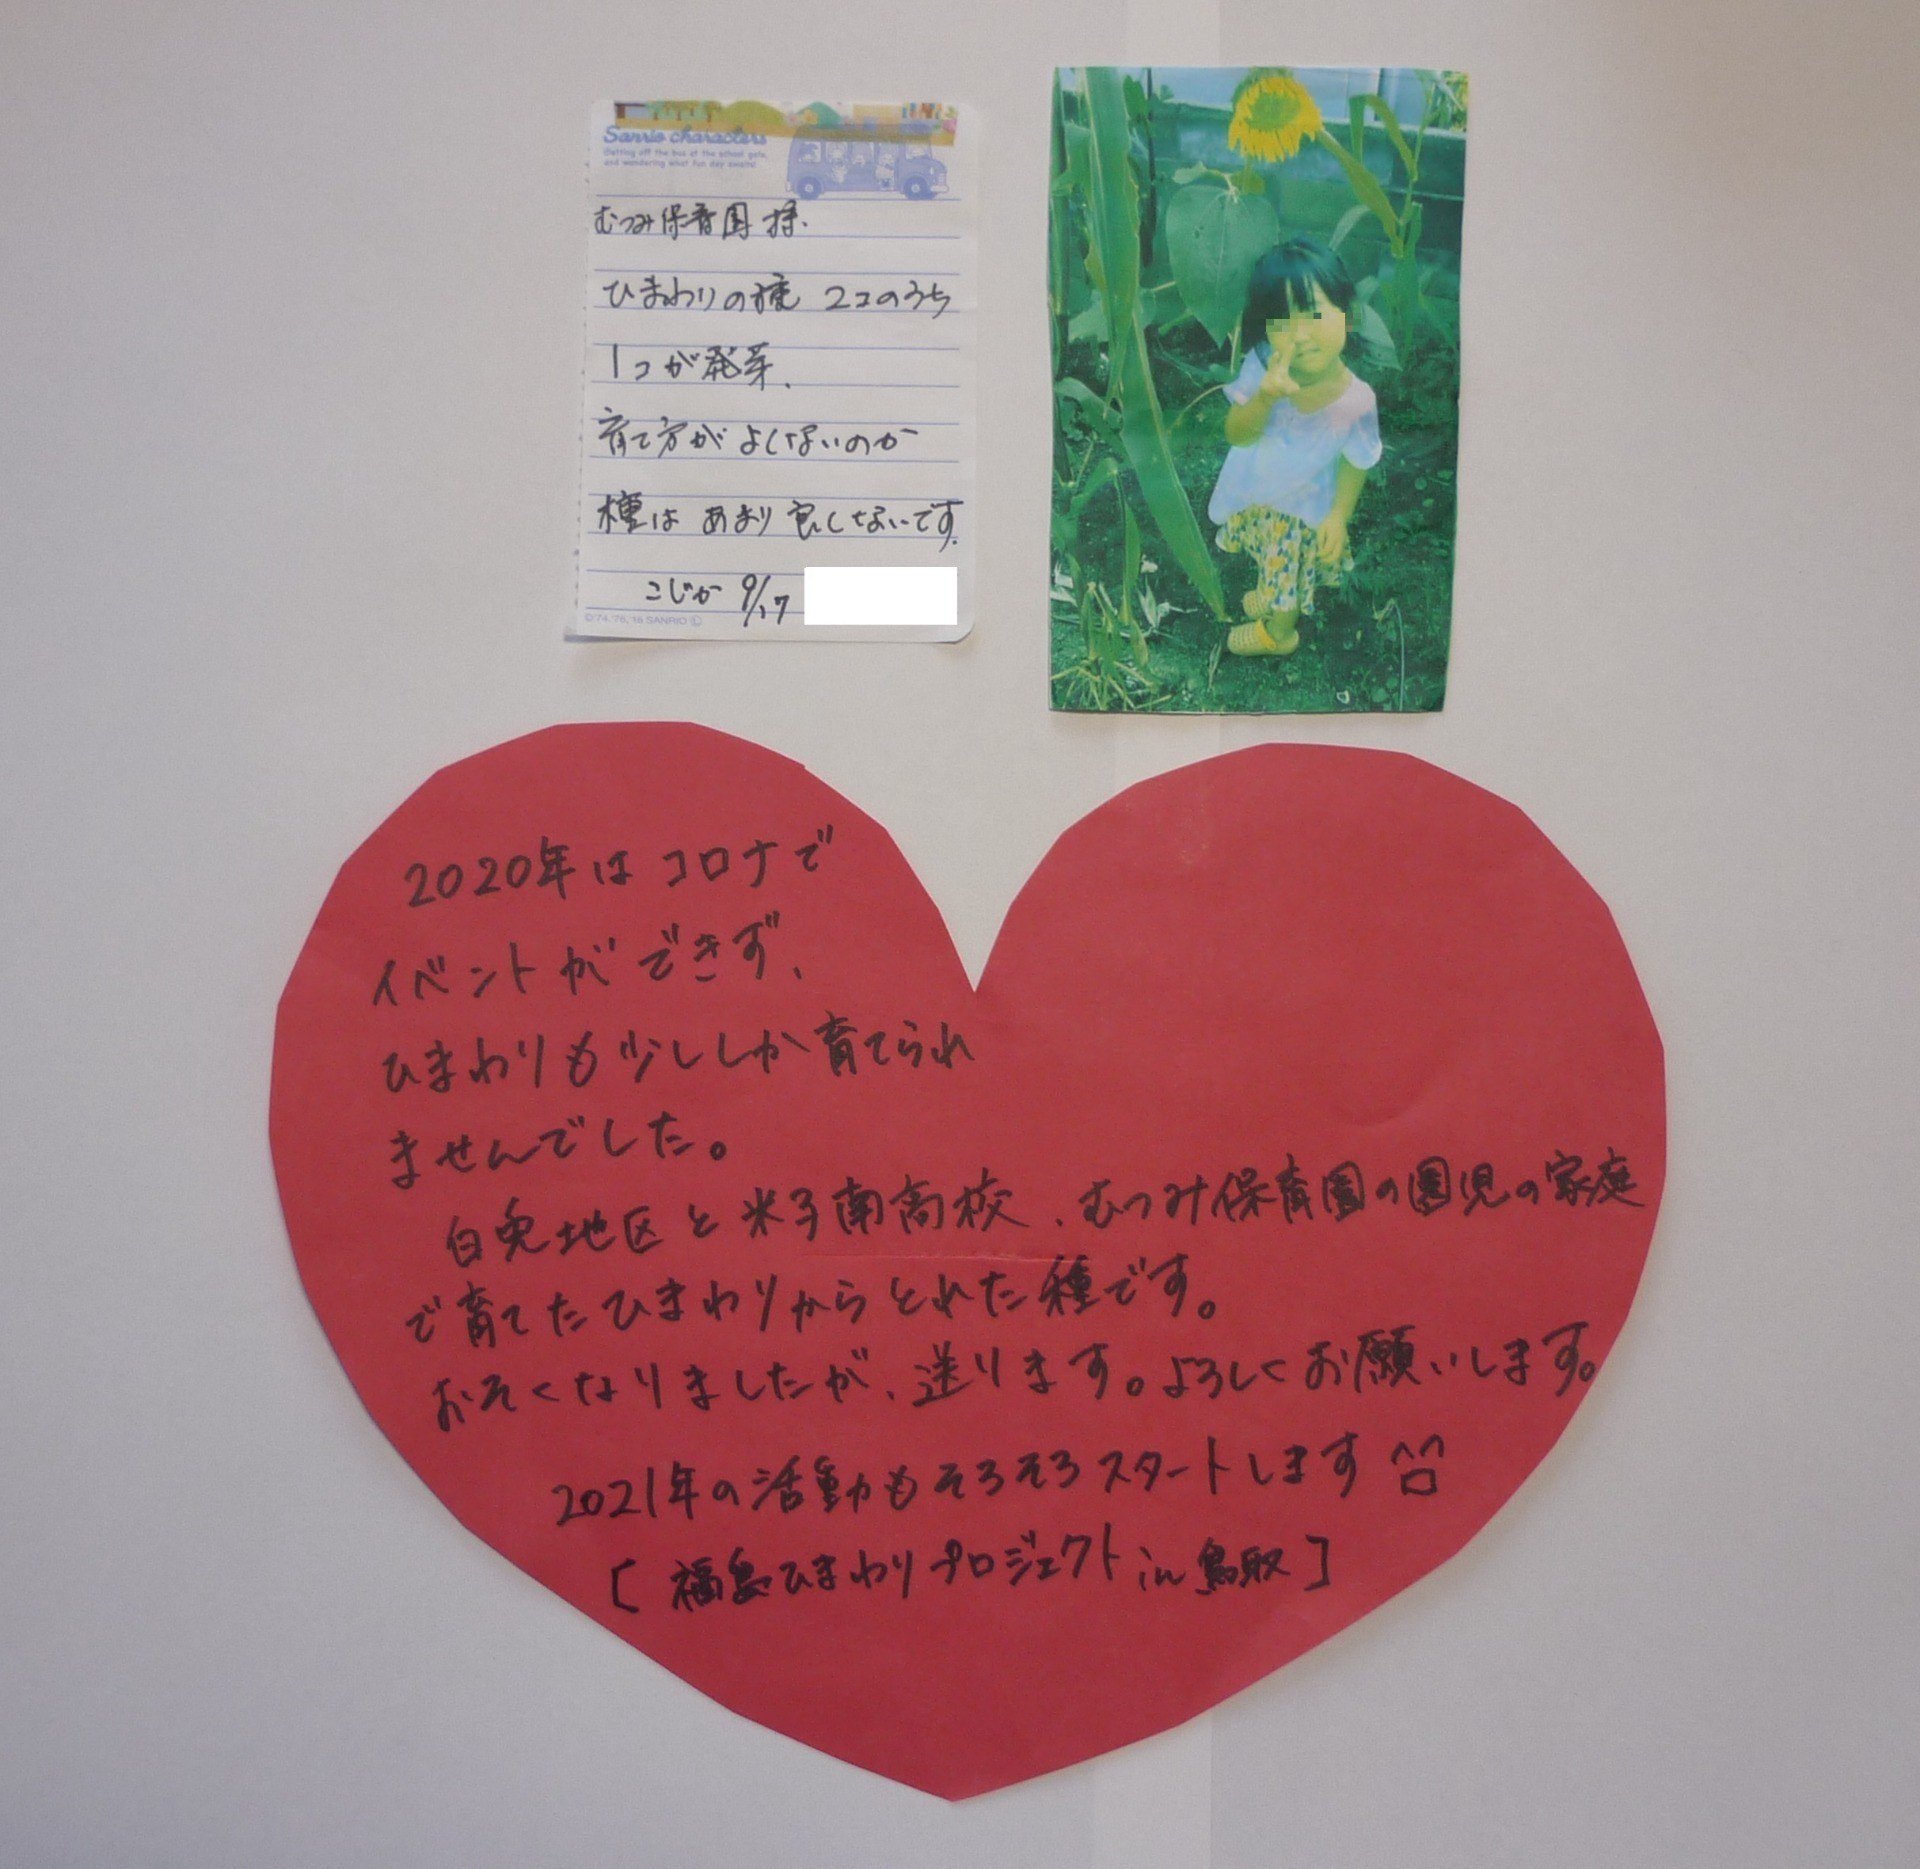 Sanrio characters
Getting off the bus at the school gate,
and wondering what fun day awaits!
むつみ保育園様.
ひまわりの種 2コのうち
1コが発芽.
育て方がよくないのか
種は あまり良くないです.
こじか 9/17
©'74,'76,'16 SANRIO Ⓛ
2020年はコロナで
イベントができず、
ひまわりも少ししか育てられ
ませんでした。
白兎地区と米子南高校、むつみ保育園の園児の家庭
で育てたひまわりからとれた種です。
おそくなりましたが、送ります。よろしくお願いします。
2021年の活動もそろそろスタートします
[福島ひまわりプロジェクト in 鳥取]